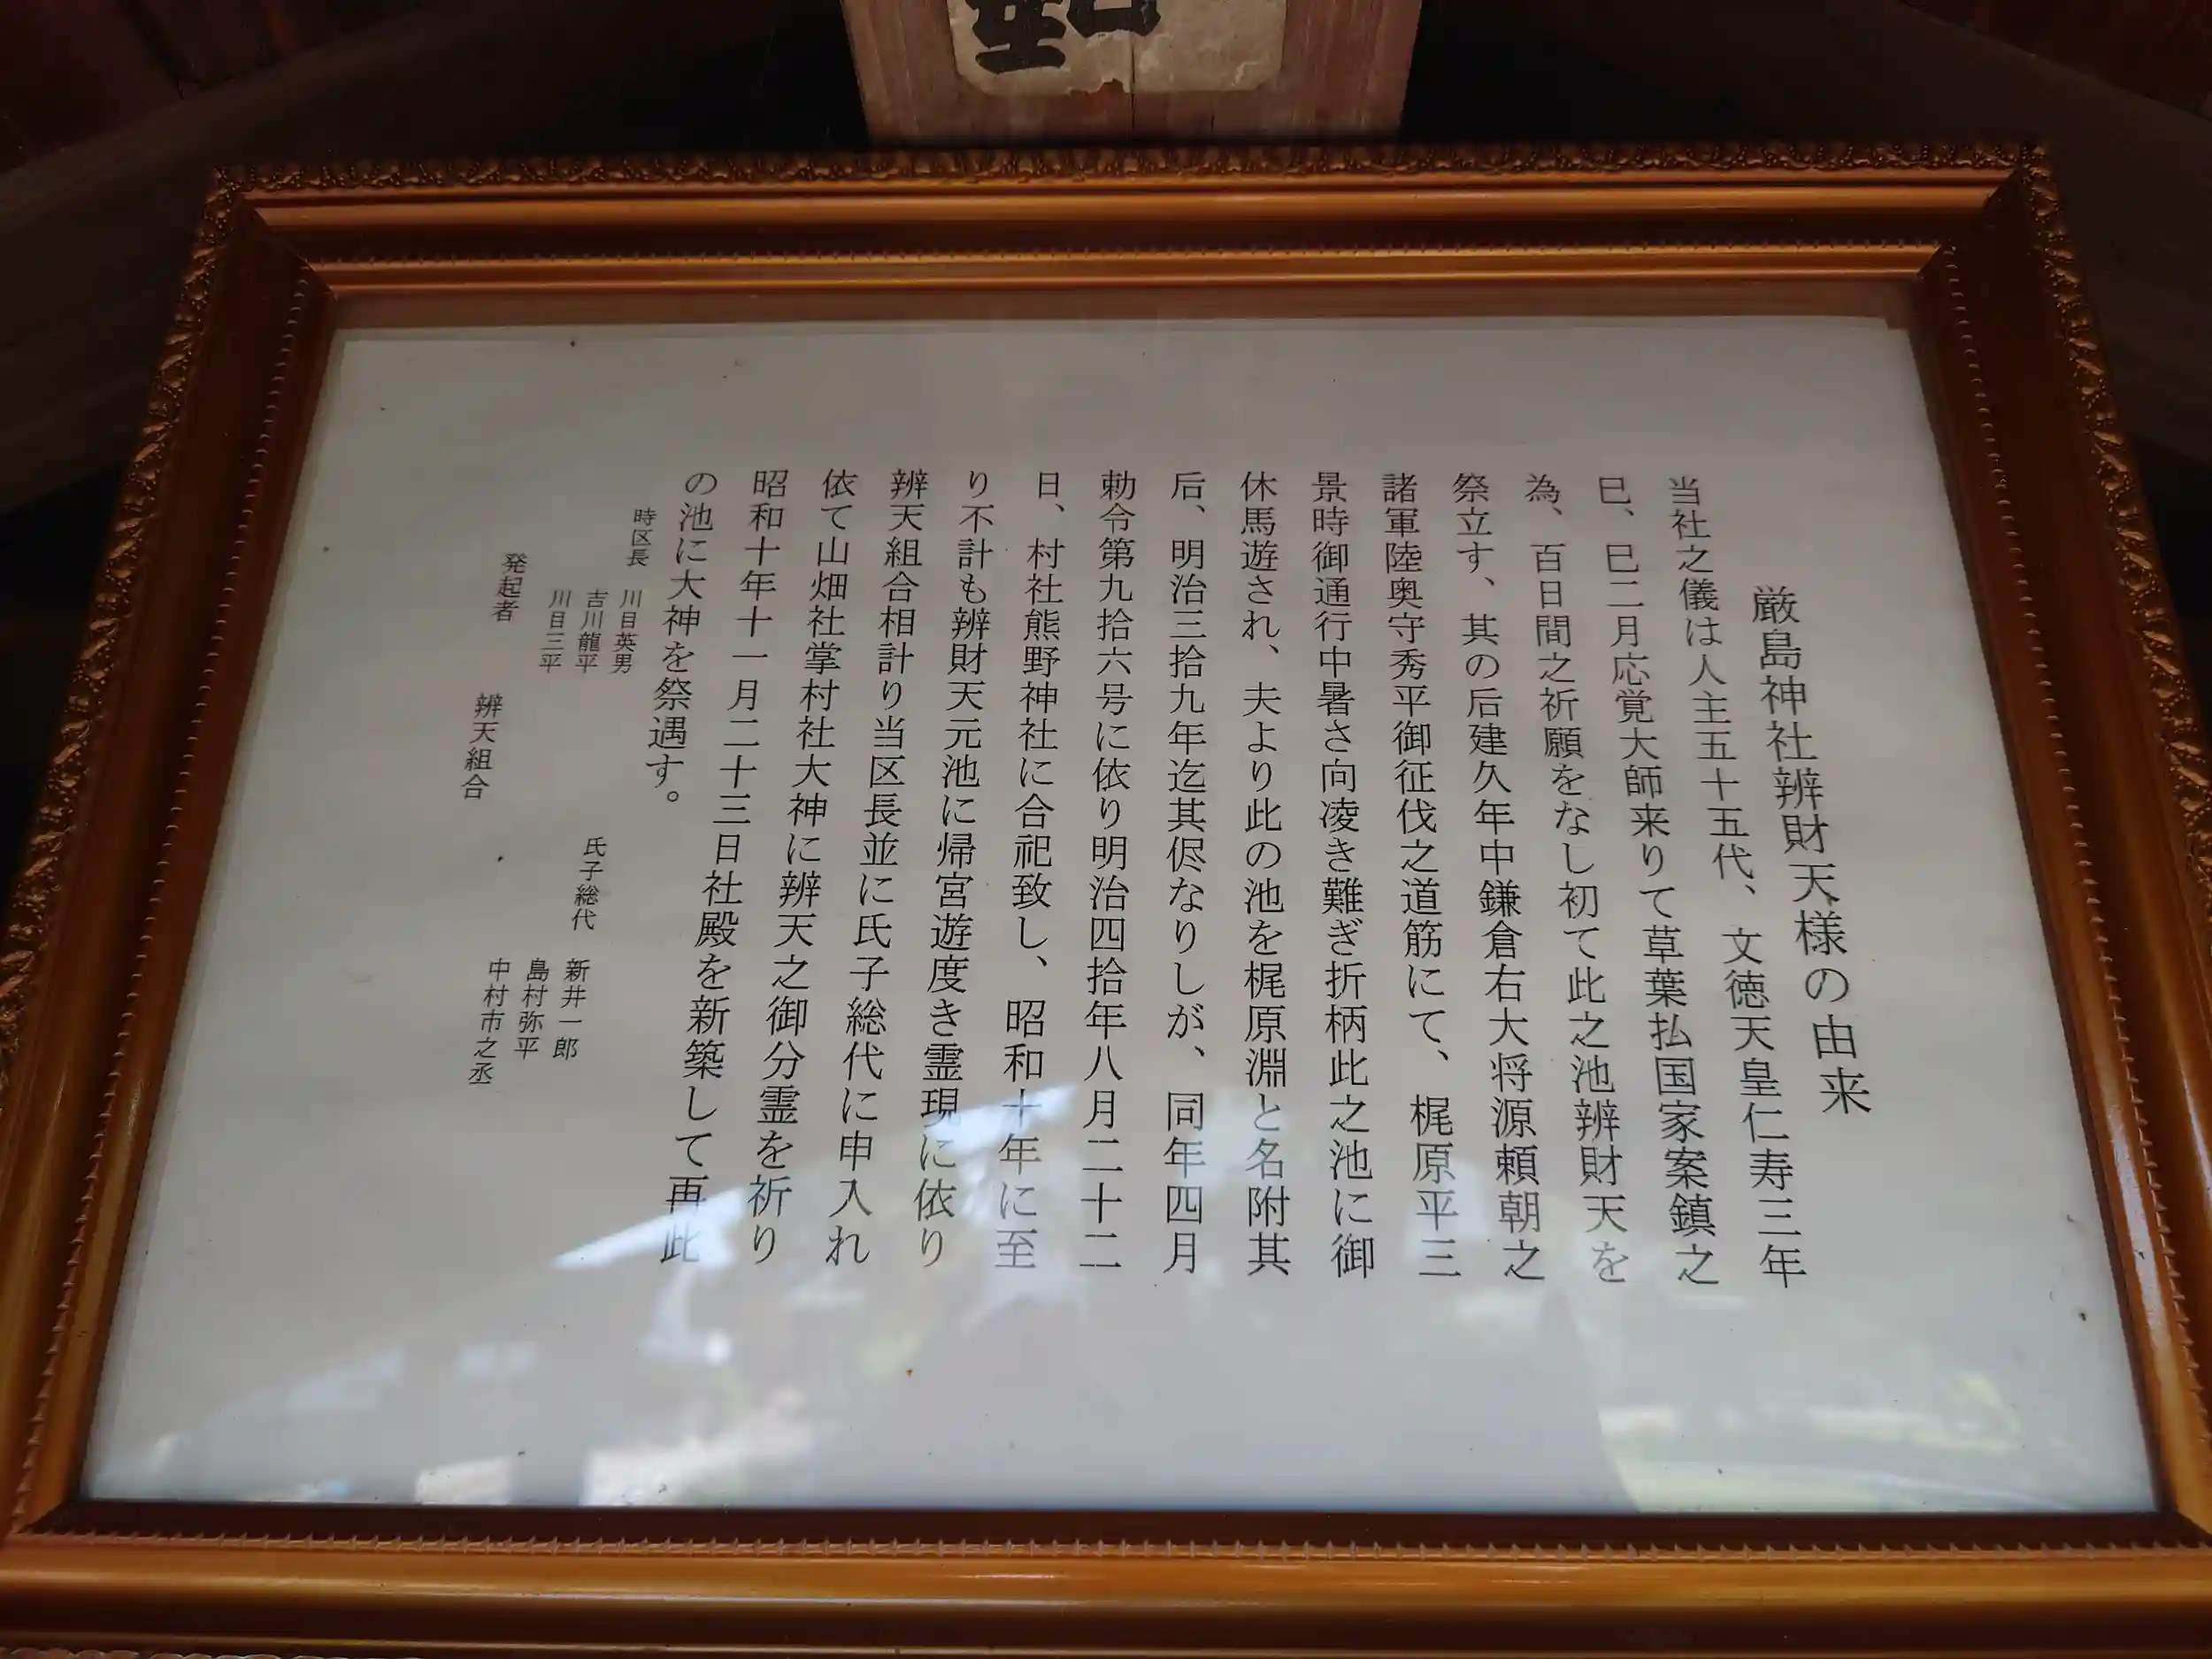 厳島神社辨財天様の由来
当社之儀は人主五十五代、文徳天皇仁寿三年
巳、巳二月応覚大師来りて草葉払国家案鎮之
為、百日間之祈願をなし初て此之池辨財天を
祭立す、其の后建久年中鎌倉右大将源頼朝之
諸軍陸奥守秀平御征伐之道筋にて、梶原平三
景時御通行中暑さ向凌き難ぎ折柄此之池に御
休馬遊され、夫より此の池を梶原淵と名附其
后、明治三拾九年迄其侭なりしが、同年四月
勅令第九拾六号に依り明治四拾年八月二十二
日、村社熊野神社に合祀致し、昭和十年に至
り不計も辨財天元池に帰宮遊度き霊現に依り
辨天組合相計り当区長並に氏子総代に申入れ
依て山畑社掌村社大神に辨天之御分霊を祈り
昭和十年十一月二十三日社殿を新築して再此
の池に大神を祭遇す。
時区長
川目英男
吉川龍平
川目三平
発起者
辨天組合
氏子総代
新井一郎
島村弥平
中村市之丞